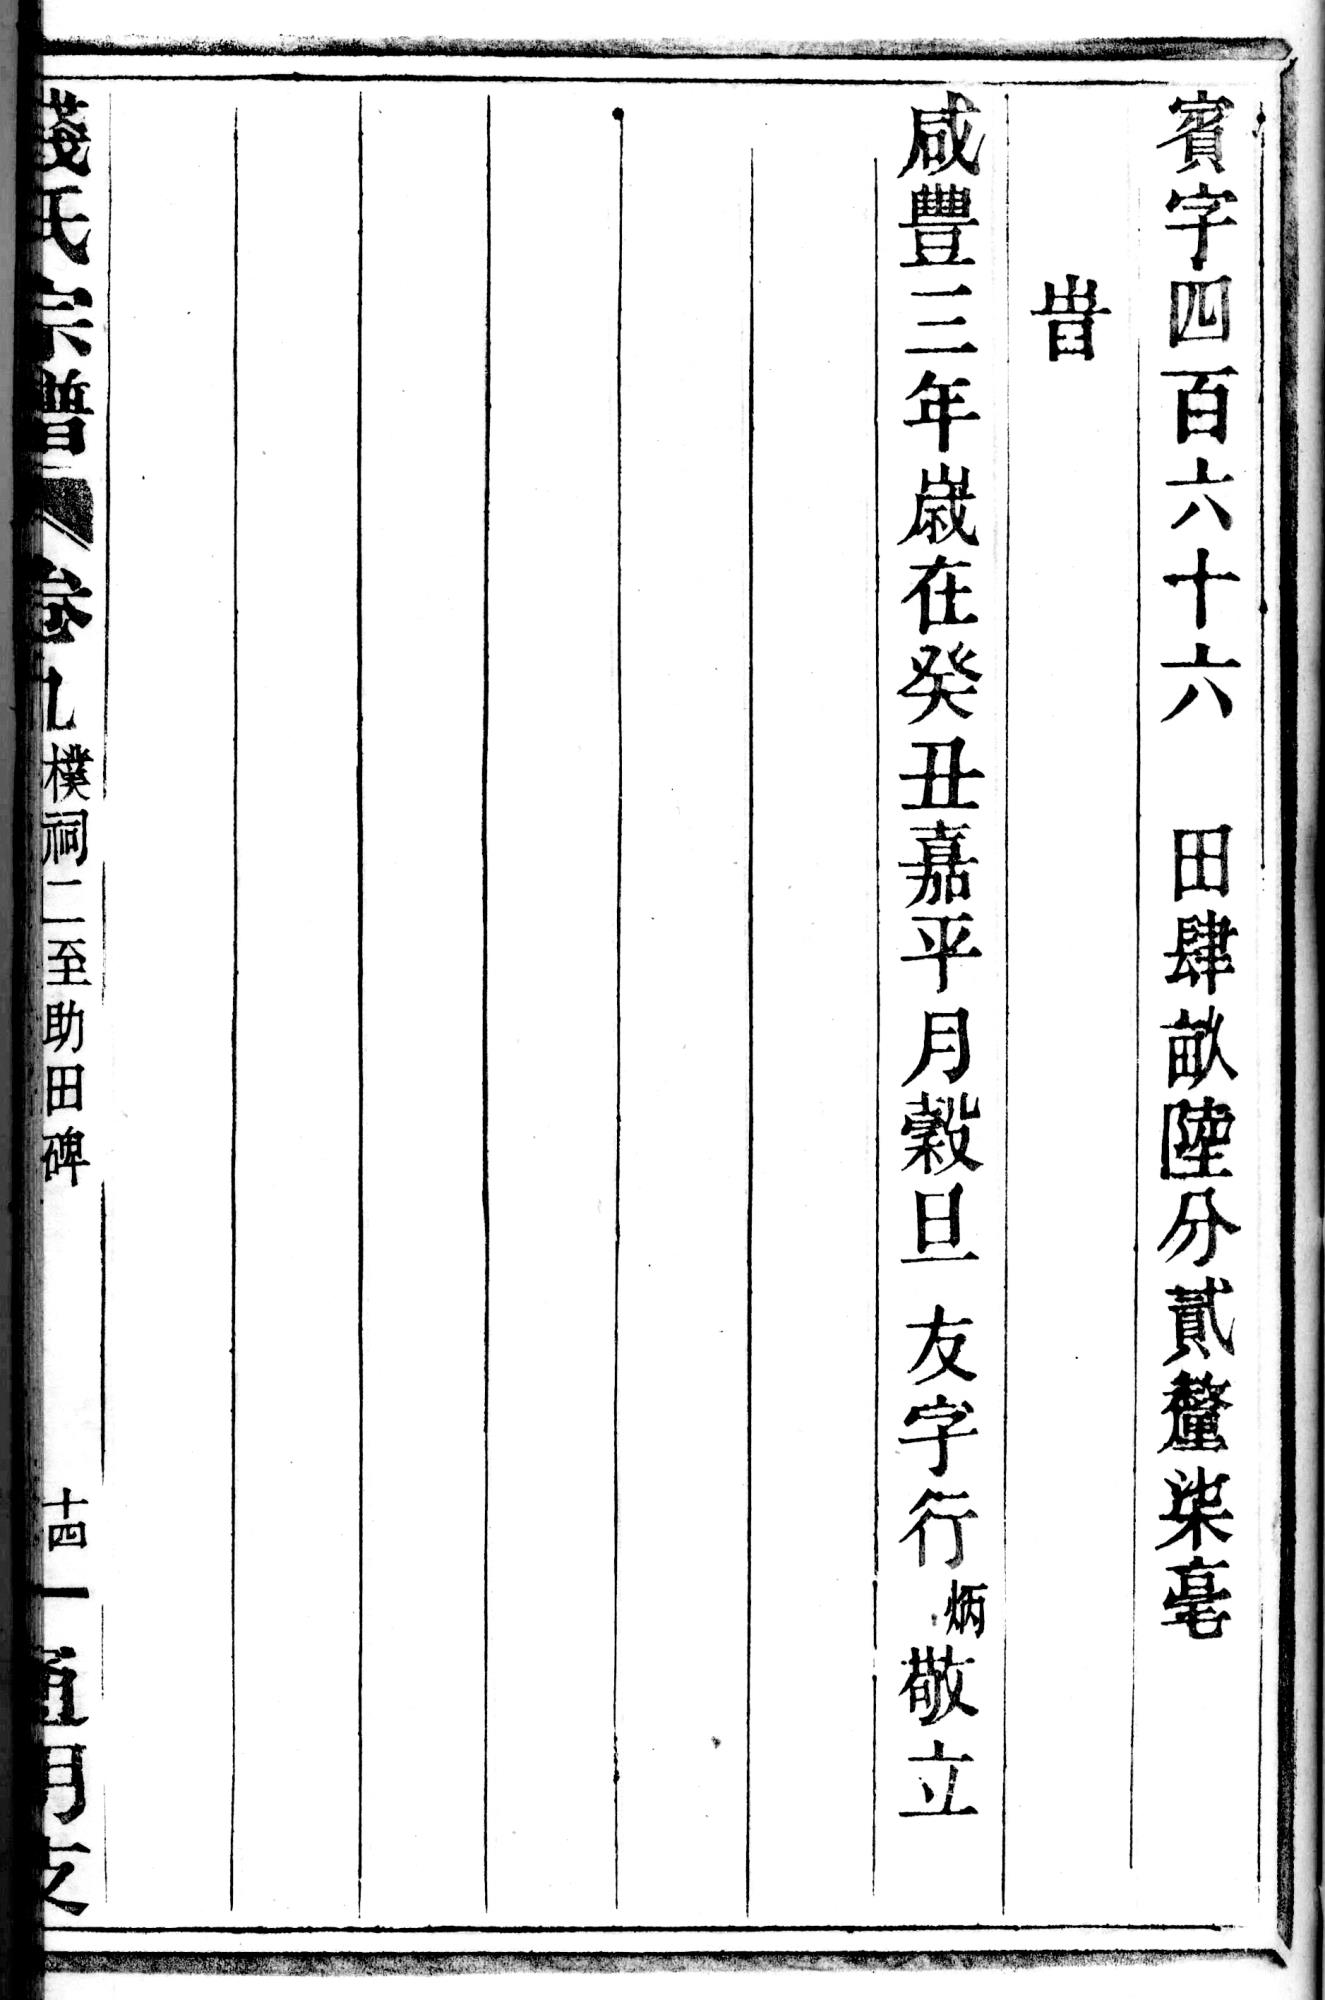 賓字四百六十六 田肆畝陸分貳釐柒毫
旹
咸豐三年歲在癸丑嘉平月穀旦 友字行炳敬立
錢氏宗譜 卷九 樸祠二至助田碑 十四 通明支